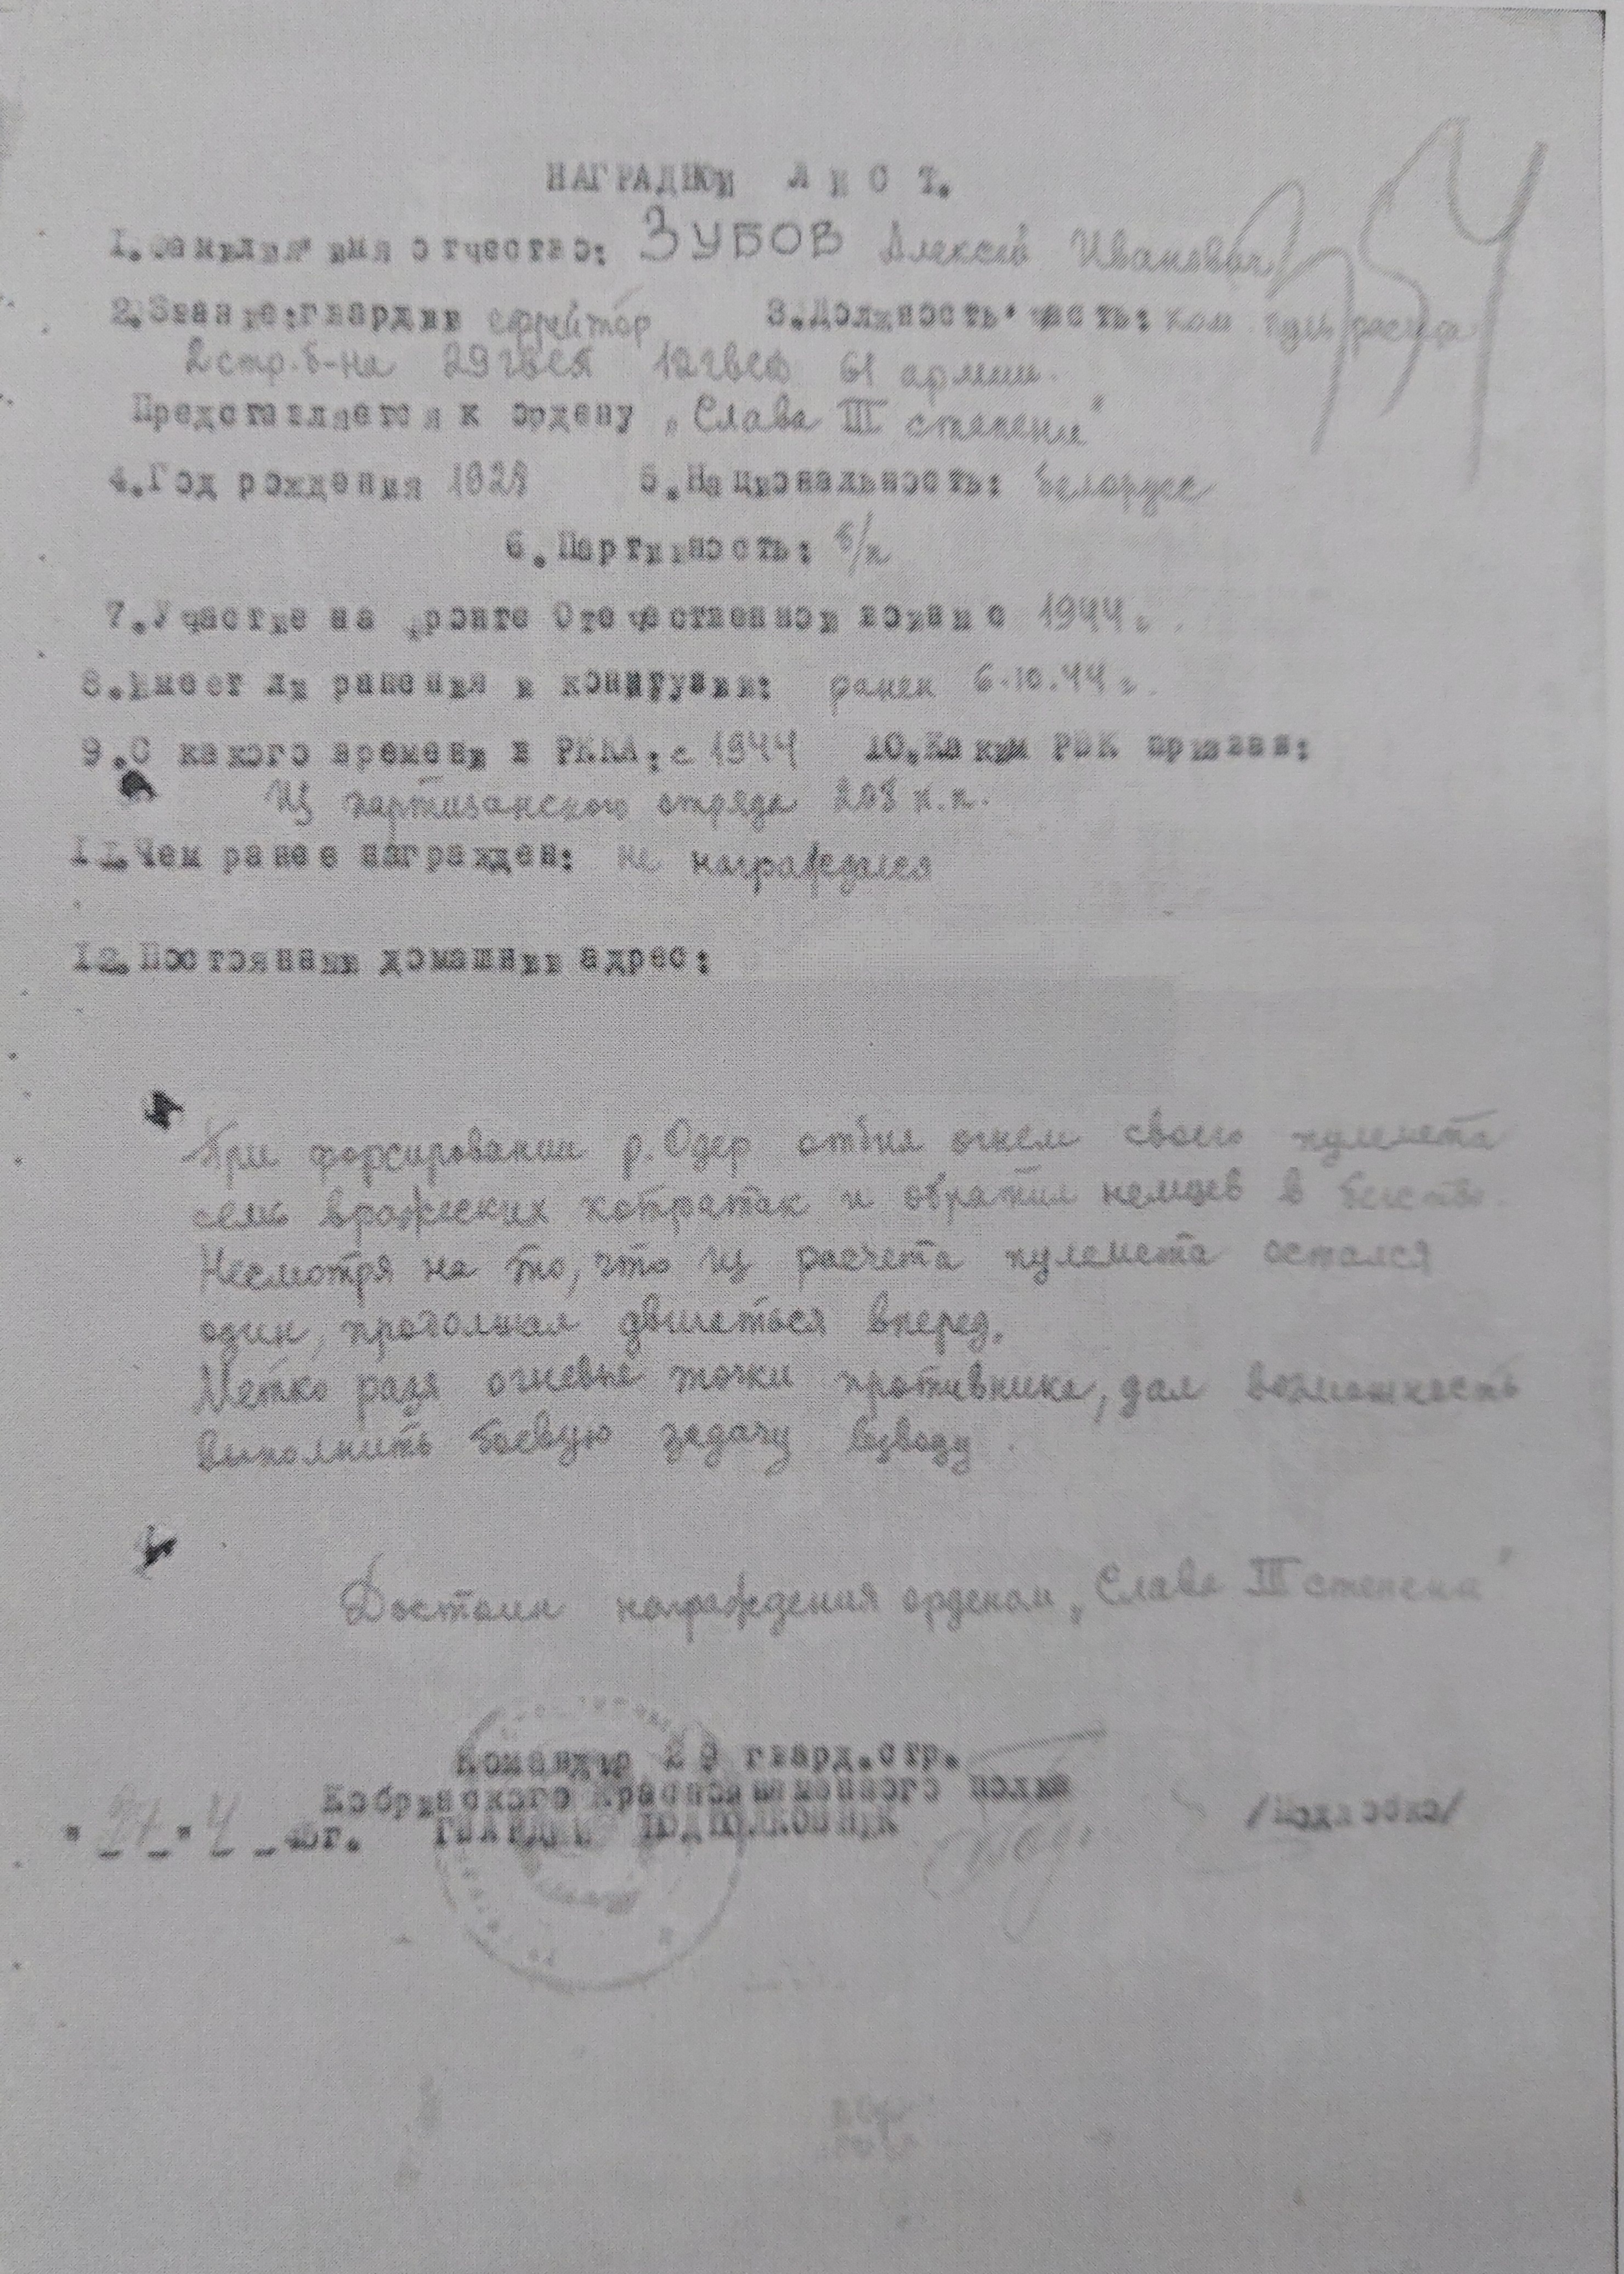 НАГРАДНОЙ ЛИСТ.
354
1. Фамилия имя отчество: ЗУБОВ Алексей Иванович
2. Звание: гвардии ефрейтор 3. Должность часть: ком. пул. расчета
2 стр. б-на 29 гвсп 12 гвсд 61 армии.
Представляется к ордену „Слава III степени"
4. Год рождения 1928 5. Национальность: белорусс
6. Партийность: б/п
7. Участие на фронте Отечественной войны с 1944 г.
8. Имеет ли ранения и контузии: ранен 6.10.44 г.
9. С какого времени в РККА: с 1944 10. Каким РВК призван:
Из партизанского отряда 208 п.п.
11. Чем ранее награжден: не награждался
12. Постоянный домашний адрес:
При форсировании р. Одер отбил огнем своего пулемета
семь вражеских котратак и обратил немцев в бегство.
Несмотря на то, что из расчета пулемета остался
один, продолжал двигаться вперед.
Метко разя огневые точки противника, дал возможность
выполнить боевую задачу взводу.
Достоин награждения орденом „Слава III степени"
Командир 29 гвард. стр.
Кобринского Краснознаменного полка
" " 4 45г. ГВАРДИИ ПОДПОЛКОВНИК